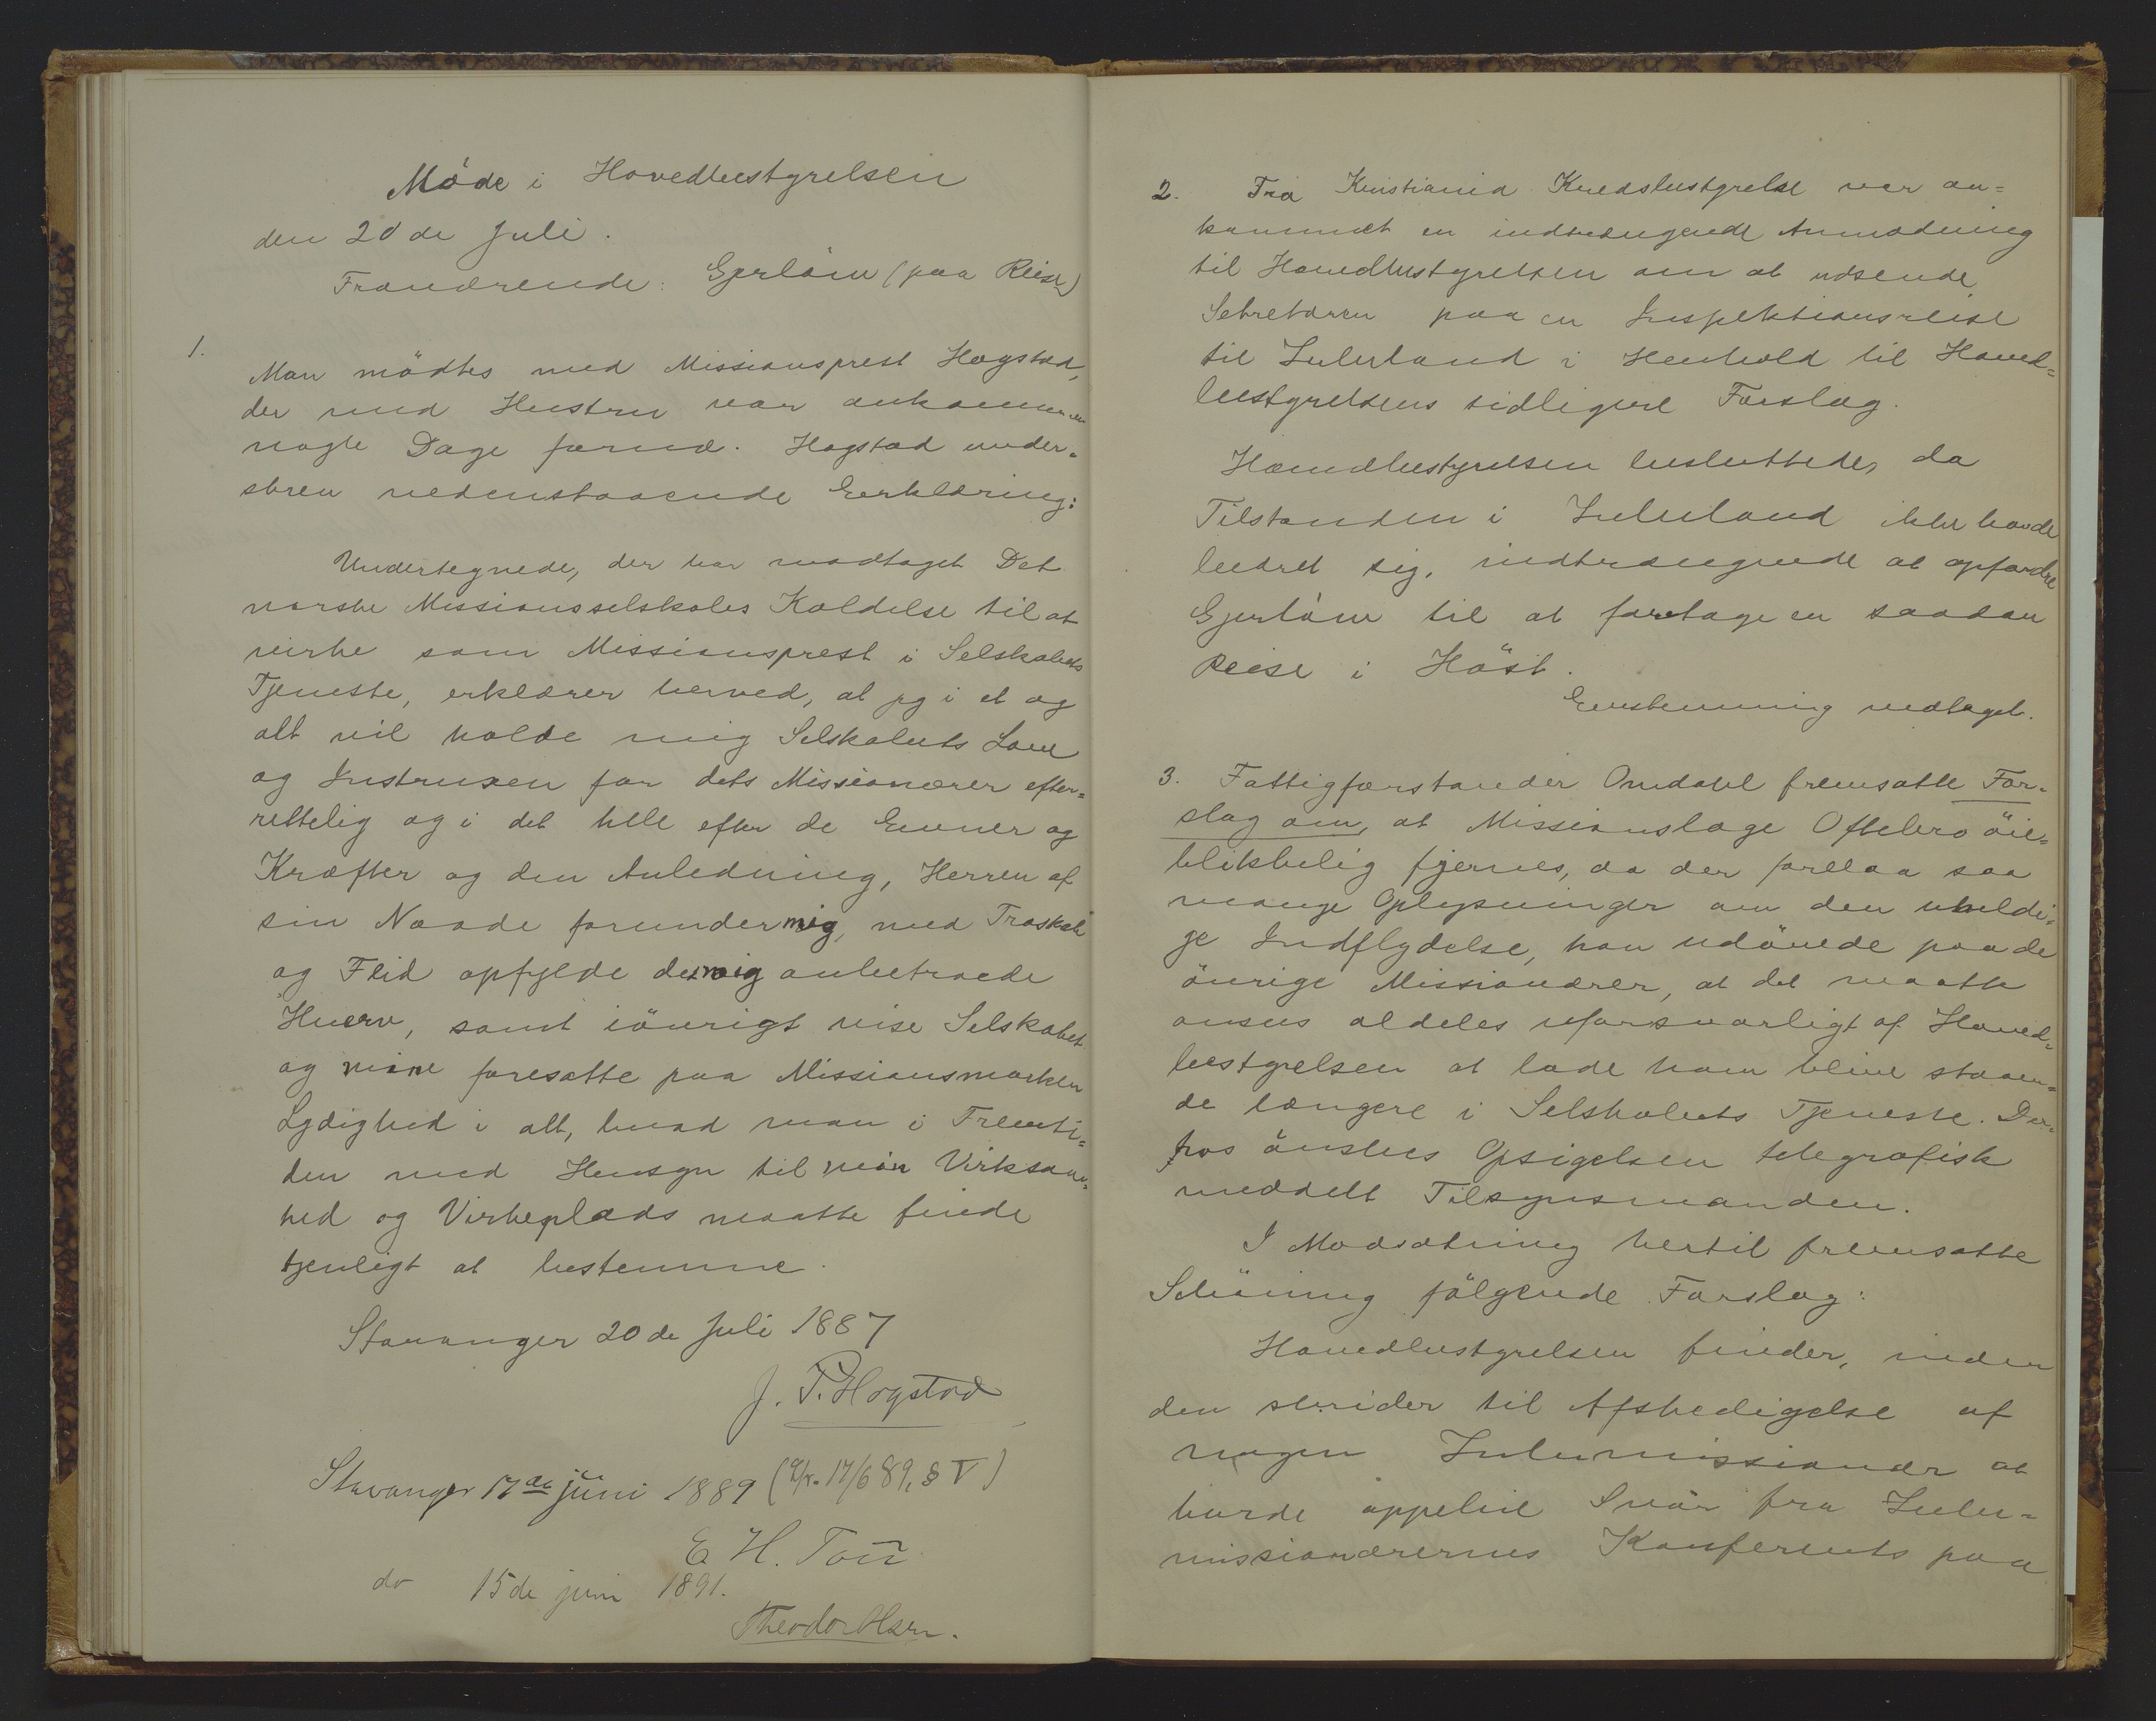 Möde i Hovedbestyrelsen
den 20de Juli.
Fraværende: Gjerlöw (paa Reise)
1.
Man mödtes med Missionsprest Hogstad,
der med Hustru var ankommen
nogle Dage forud. Hogstad under-
skrev nedenstaaende Erklæring:
Undertegnede, der har modtaget Det
norske Missionsselskabs Kaldelse til at
virke som Missionsprest i Selskabets
Tjeneste, erklærer herved, at jeg i et og
alt vil holde mig Selskabets Love
og Instruxen for dets Missionærer efter=
rettelig og i det hele efter de Evner og
Kræfter og den Anledning, Herren af
sin Naade forunder mig, med Troskab
og Flid opfylde det mig anbetroede
Hverv, samt iövrigt vise Selskabet
og mine foresatte paa Missionsmarken
Lydighed i alt, hvad man i Fremti=
den med Hensyn til min Virksom=
hed og Virkeplads maatte finde
tjenligt at bestemme.
Stavanger 20de Juli 1887
J. P. Hogstad
Stavanger 17de juni 1889 (Cfr. 17/6 89, § V)
E H. Tou
do 15de juni 1891.
Theodor Olsen.
2. Fra Kristiania Kredsbestyrelse var an=
kommet en indtrængende Anmodning
til Hovedbestyrelsen om at udsende
Sekretæren paa en Inspektionsreise
til Zululand i Henhold til Hoved=
bestyrelsens tidligere Forslag.
Hovedbestyrelsen besluttede, da
Tilstanden i Zululand ikke havde
bedret sig, indtrængende at opfordre
Gjerlöw til at foretage en saadan
Reise i Höst.
Enstemmig vedtaget.
3. Fattigforstander Omdahl fremsatte For=
slag om, at Missionslæge Oftebro öie=
blikkelig fjernes, da der forelaa saa
mange Oplysninger om den uheldi=
ge Indflydelse, han udövede paa de
övrige Missionærer, at det maatte
ansees aldeles uforsvarligt af Hoved=
bestyrelsen at lade ham blive staaen=
de længere i Selskabets Tjeneste. Der=
hos önskes Opsigelsen telegrafisk
meddelt Tilsynsmanden.
I Modsætning hertil fremsatte
Schöning fölgende Forslag:
Hovedbestyrelsen finder, inden
den skrider til Afskedigelse af
nogen Zulumissionær at
burde oppebie Svar fra Zulu=
missionærernes Konferents paa